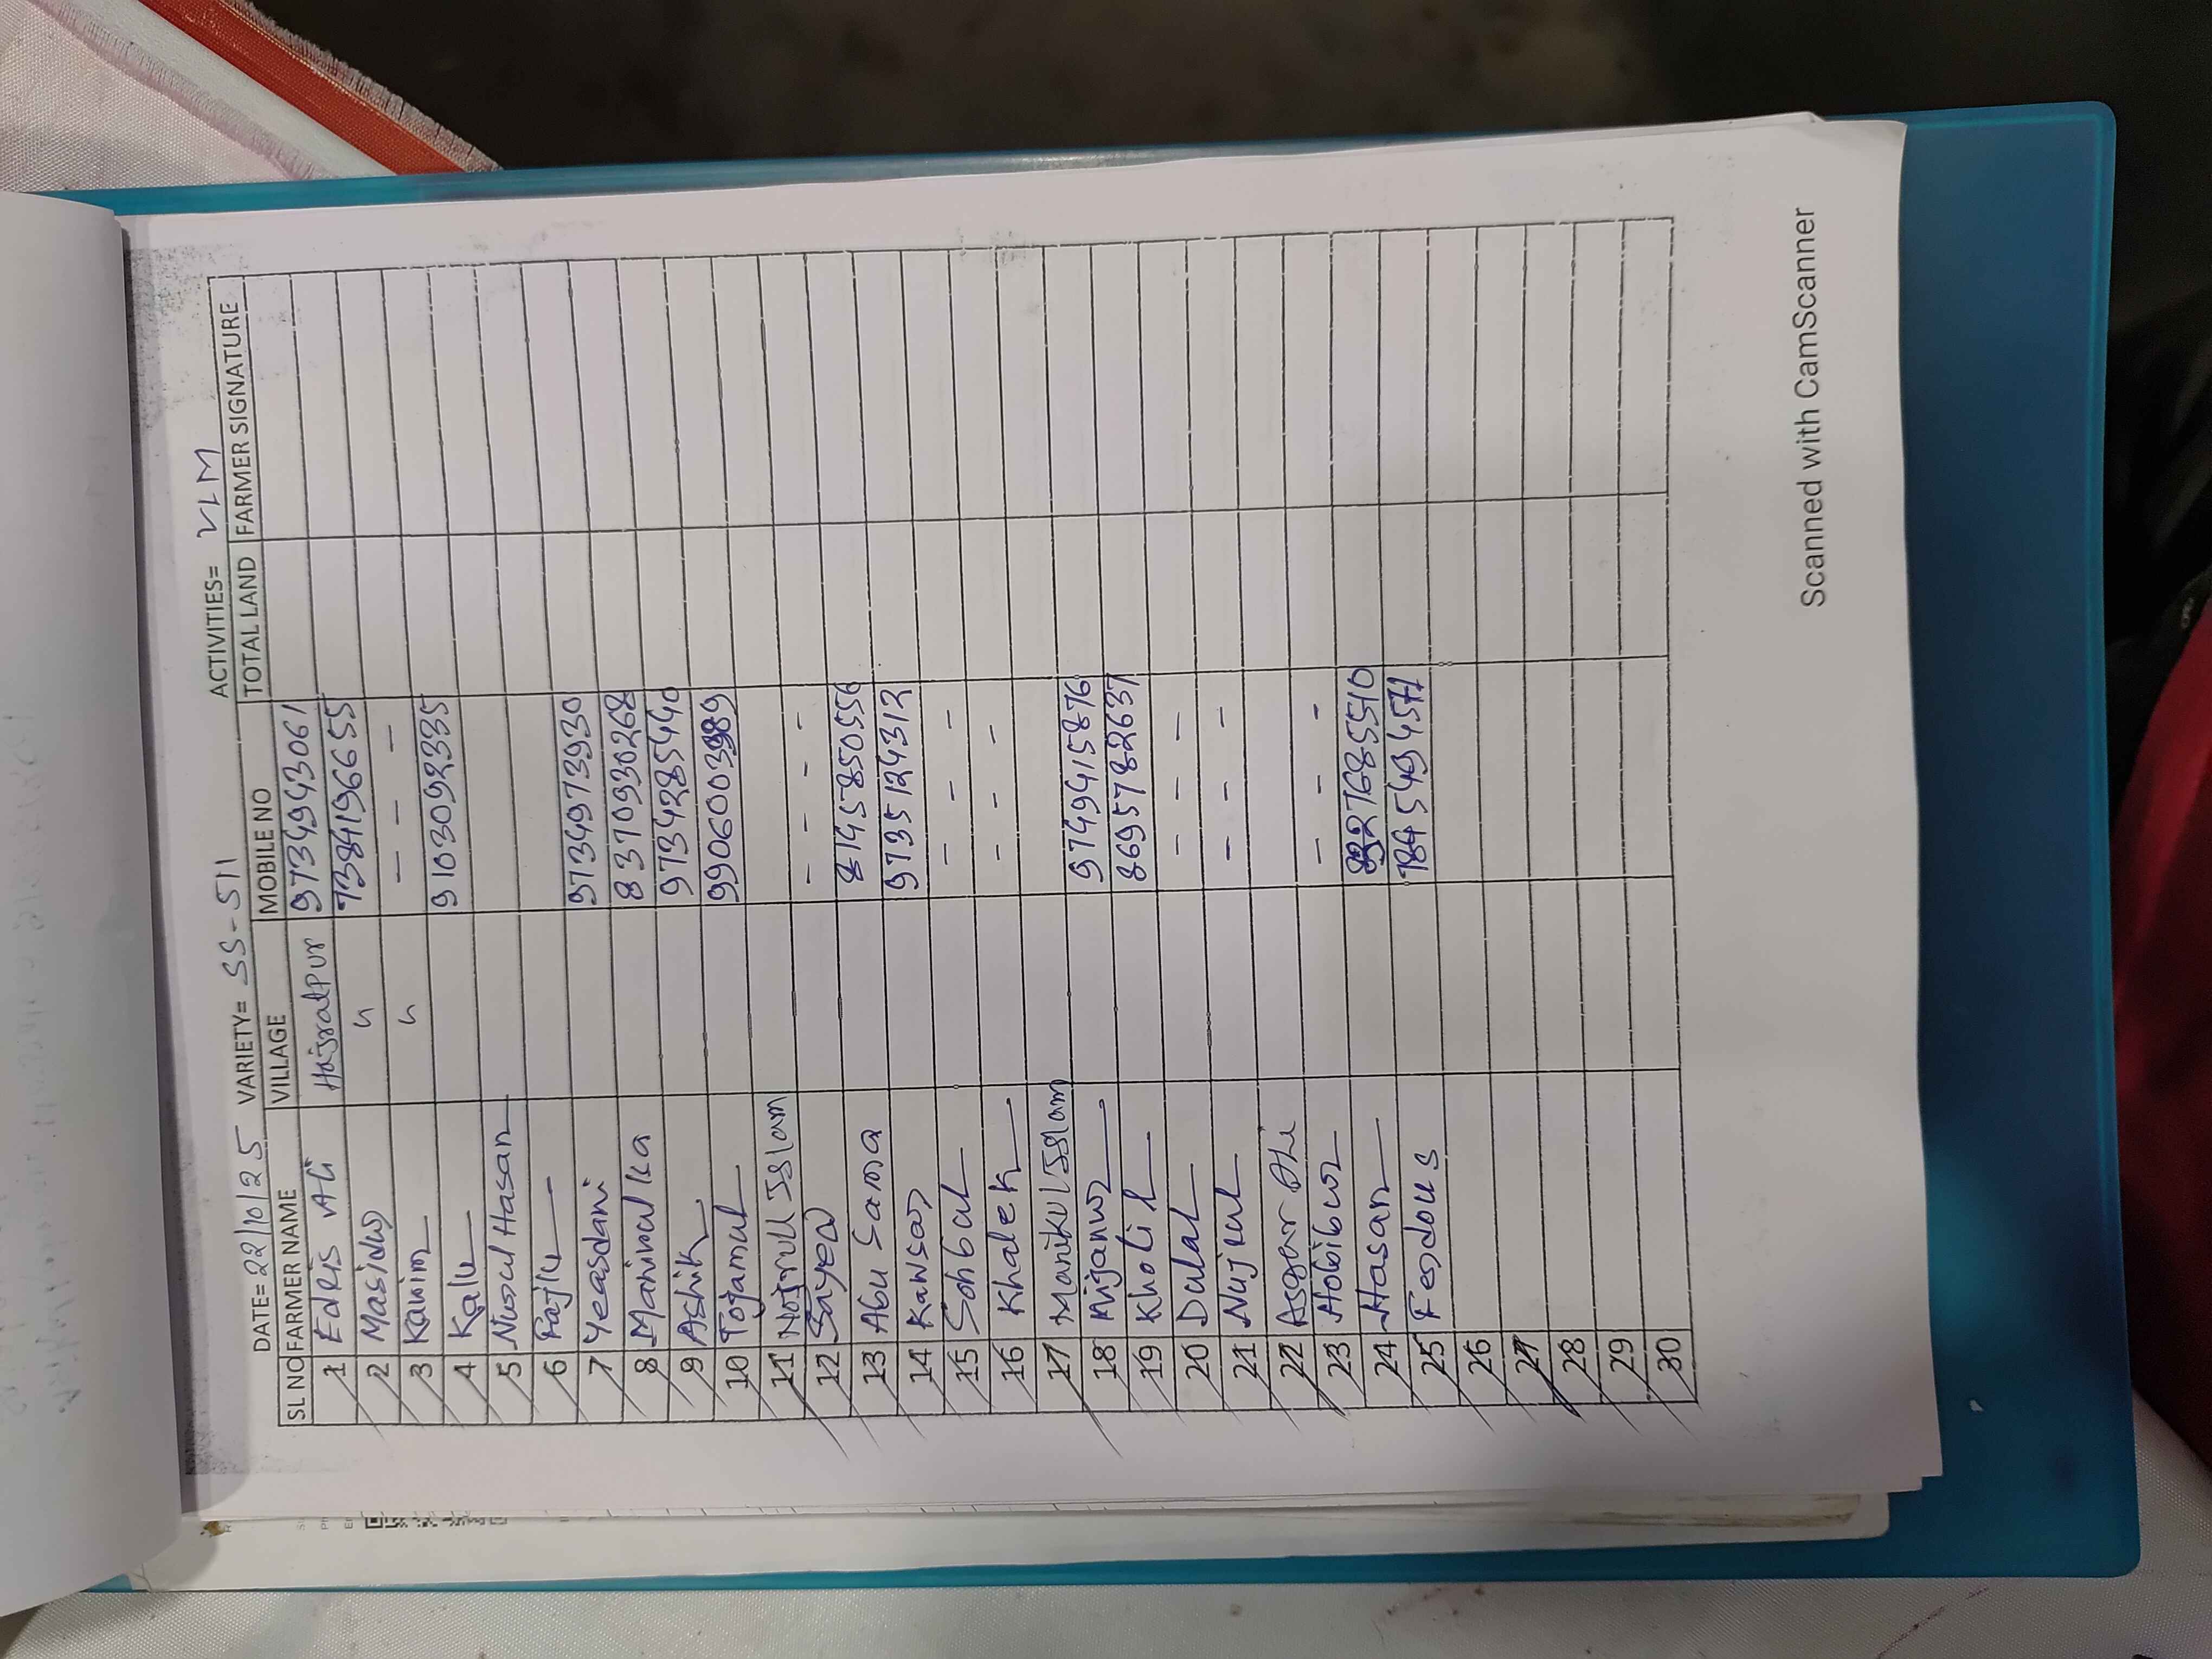 DATE= 22/10/25 VARIETY= SS-511 ACTIVITIES= VLM
SL NO FARMER NAME VILLAGE MOBILE NO TOTAL LAND FARMER SIGNATURE
1 Edris Ali Hajratpur 9734943061
2 Masidur " 7384196655
3 Karim " - - -
4 Kalu 9103092335
5 Nurul Hasan
6 Fajlu
7 Yeasdani 9734973930
8 Manirul Ka 8370930268
9 Ashik 9734285440
10 Tojamul 9906003989
11 Nojrul Islam
12 Sayed - - -
13 Abu Sama 8145850556
14 Kawsar 9735124312
15 Sohbul - - -
16 Khalek - - -
17 Manikul Islam
18 Mijanur 9749415876
19 Kholil 8695782637
20 Dulal - - -
21 Nujrul - - -
22 Asgar Ali
23 Hobibur - - -
24 Hasan 8276855510
25 Ferdous
26
27
28
29
30
Scanned with CamScanner